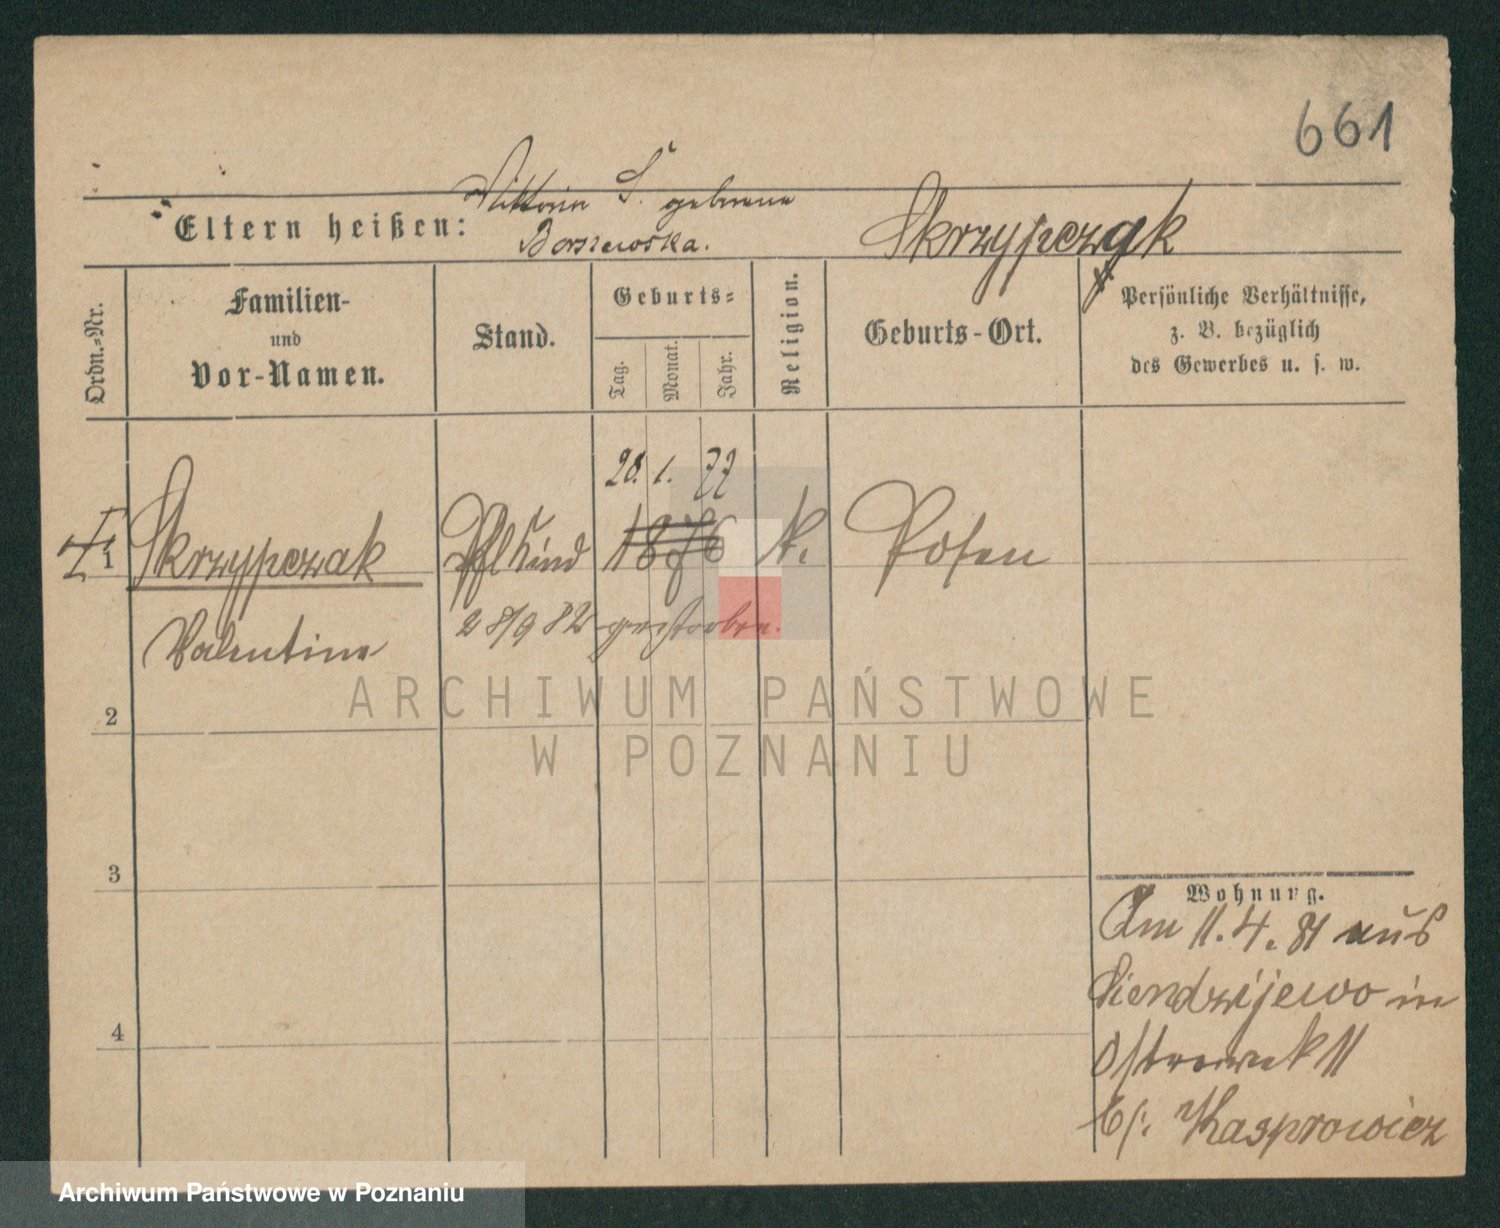 661
Viktoria S. geborene
Eltern heißen:
Borszewska.
Skrzypczak
Ordn.-Nr.
Familien-
und
Vor-Namen.
Stand.
Geburts:
Tag.
Monat.
Jahr.
Religion.
Geburts-Ort.
Persönliche Verhältnisse,
z. B. bezüglich
des Gewerbes u. s. w.
28. 1. 77
1 Skrzypczak Pflkind 1876 k. Posen
28/9 82 gestorben.
Valentin
ARCHIWUM PAŃSTWOWE
W POZNANIU
2
3
4
Wohnung.
Am 11.4.81 aus
in
Ostrowek 11
b/: Kasprowicz
Archiwum Państwowe w Poznaniu